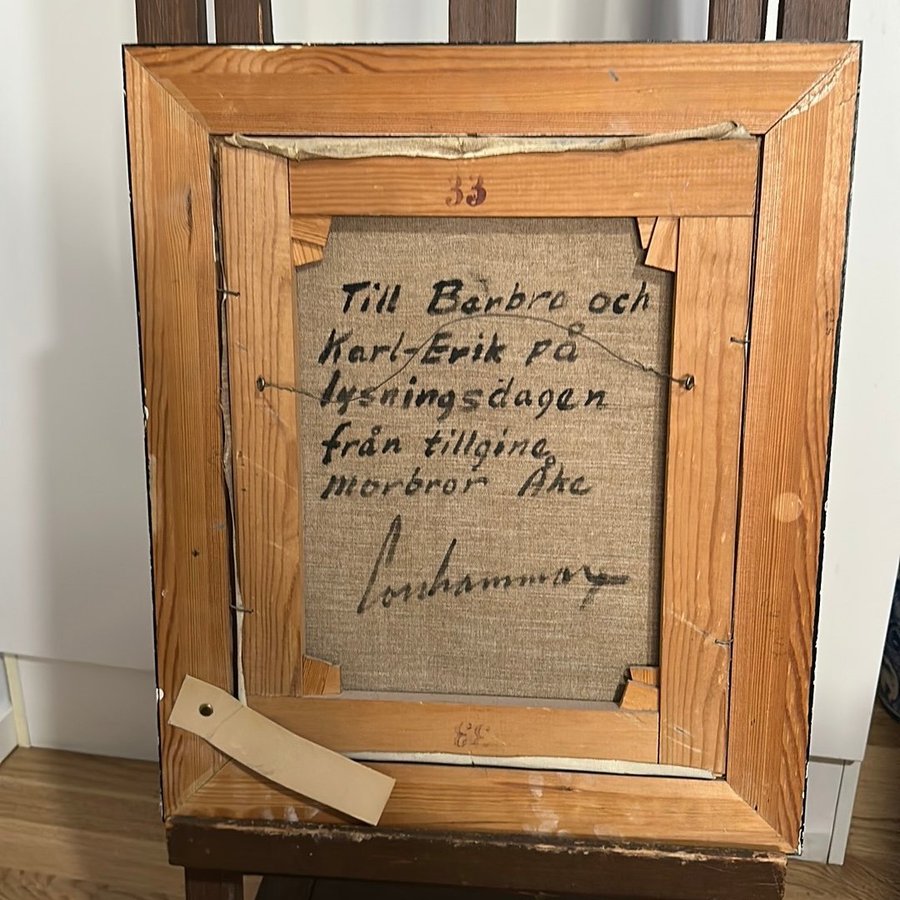 33
Till Barbro och
Karl-Erik på
lysningsdagen
från tillgine
morbror Åke
33